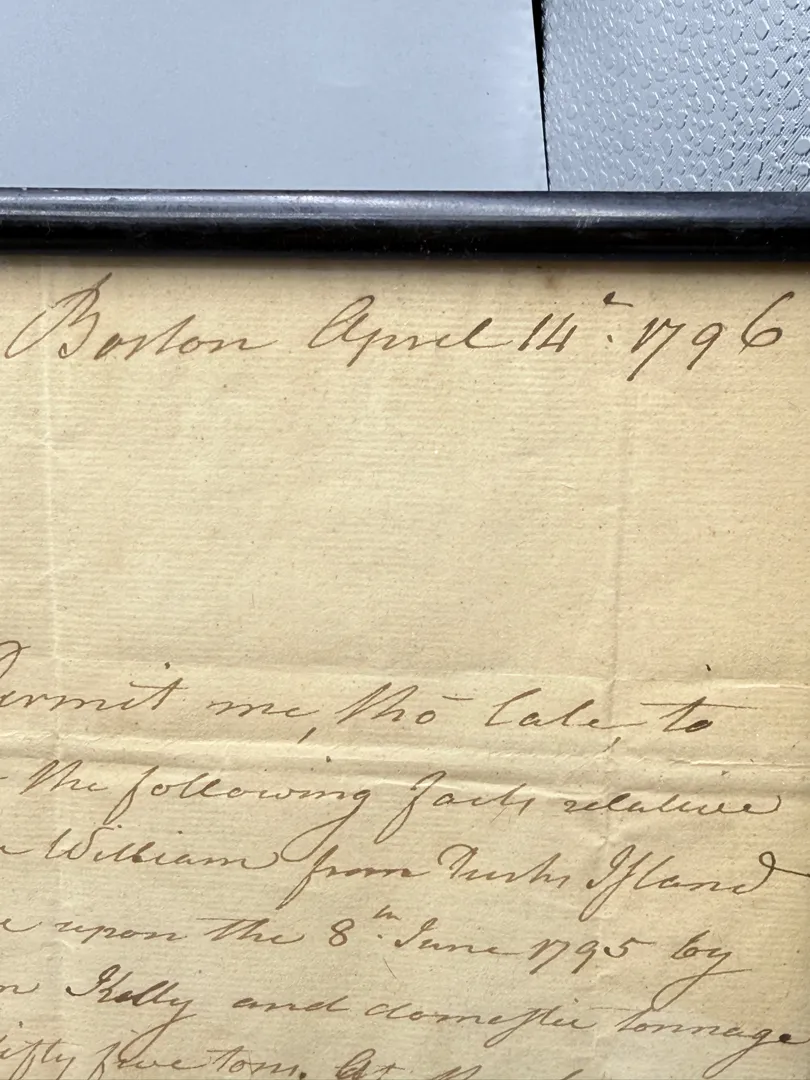 Boston April 14th. 1796
Permit me, tho late, to
the following facts relative
William from Turks Island
upon the 8th. June 1795 by
Kelly and domestic tonnage
fifty five tons. At the